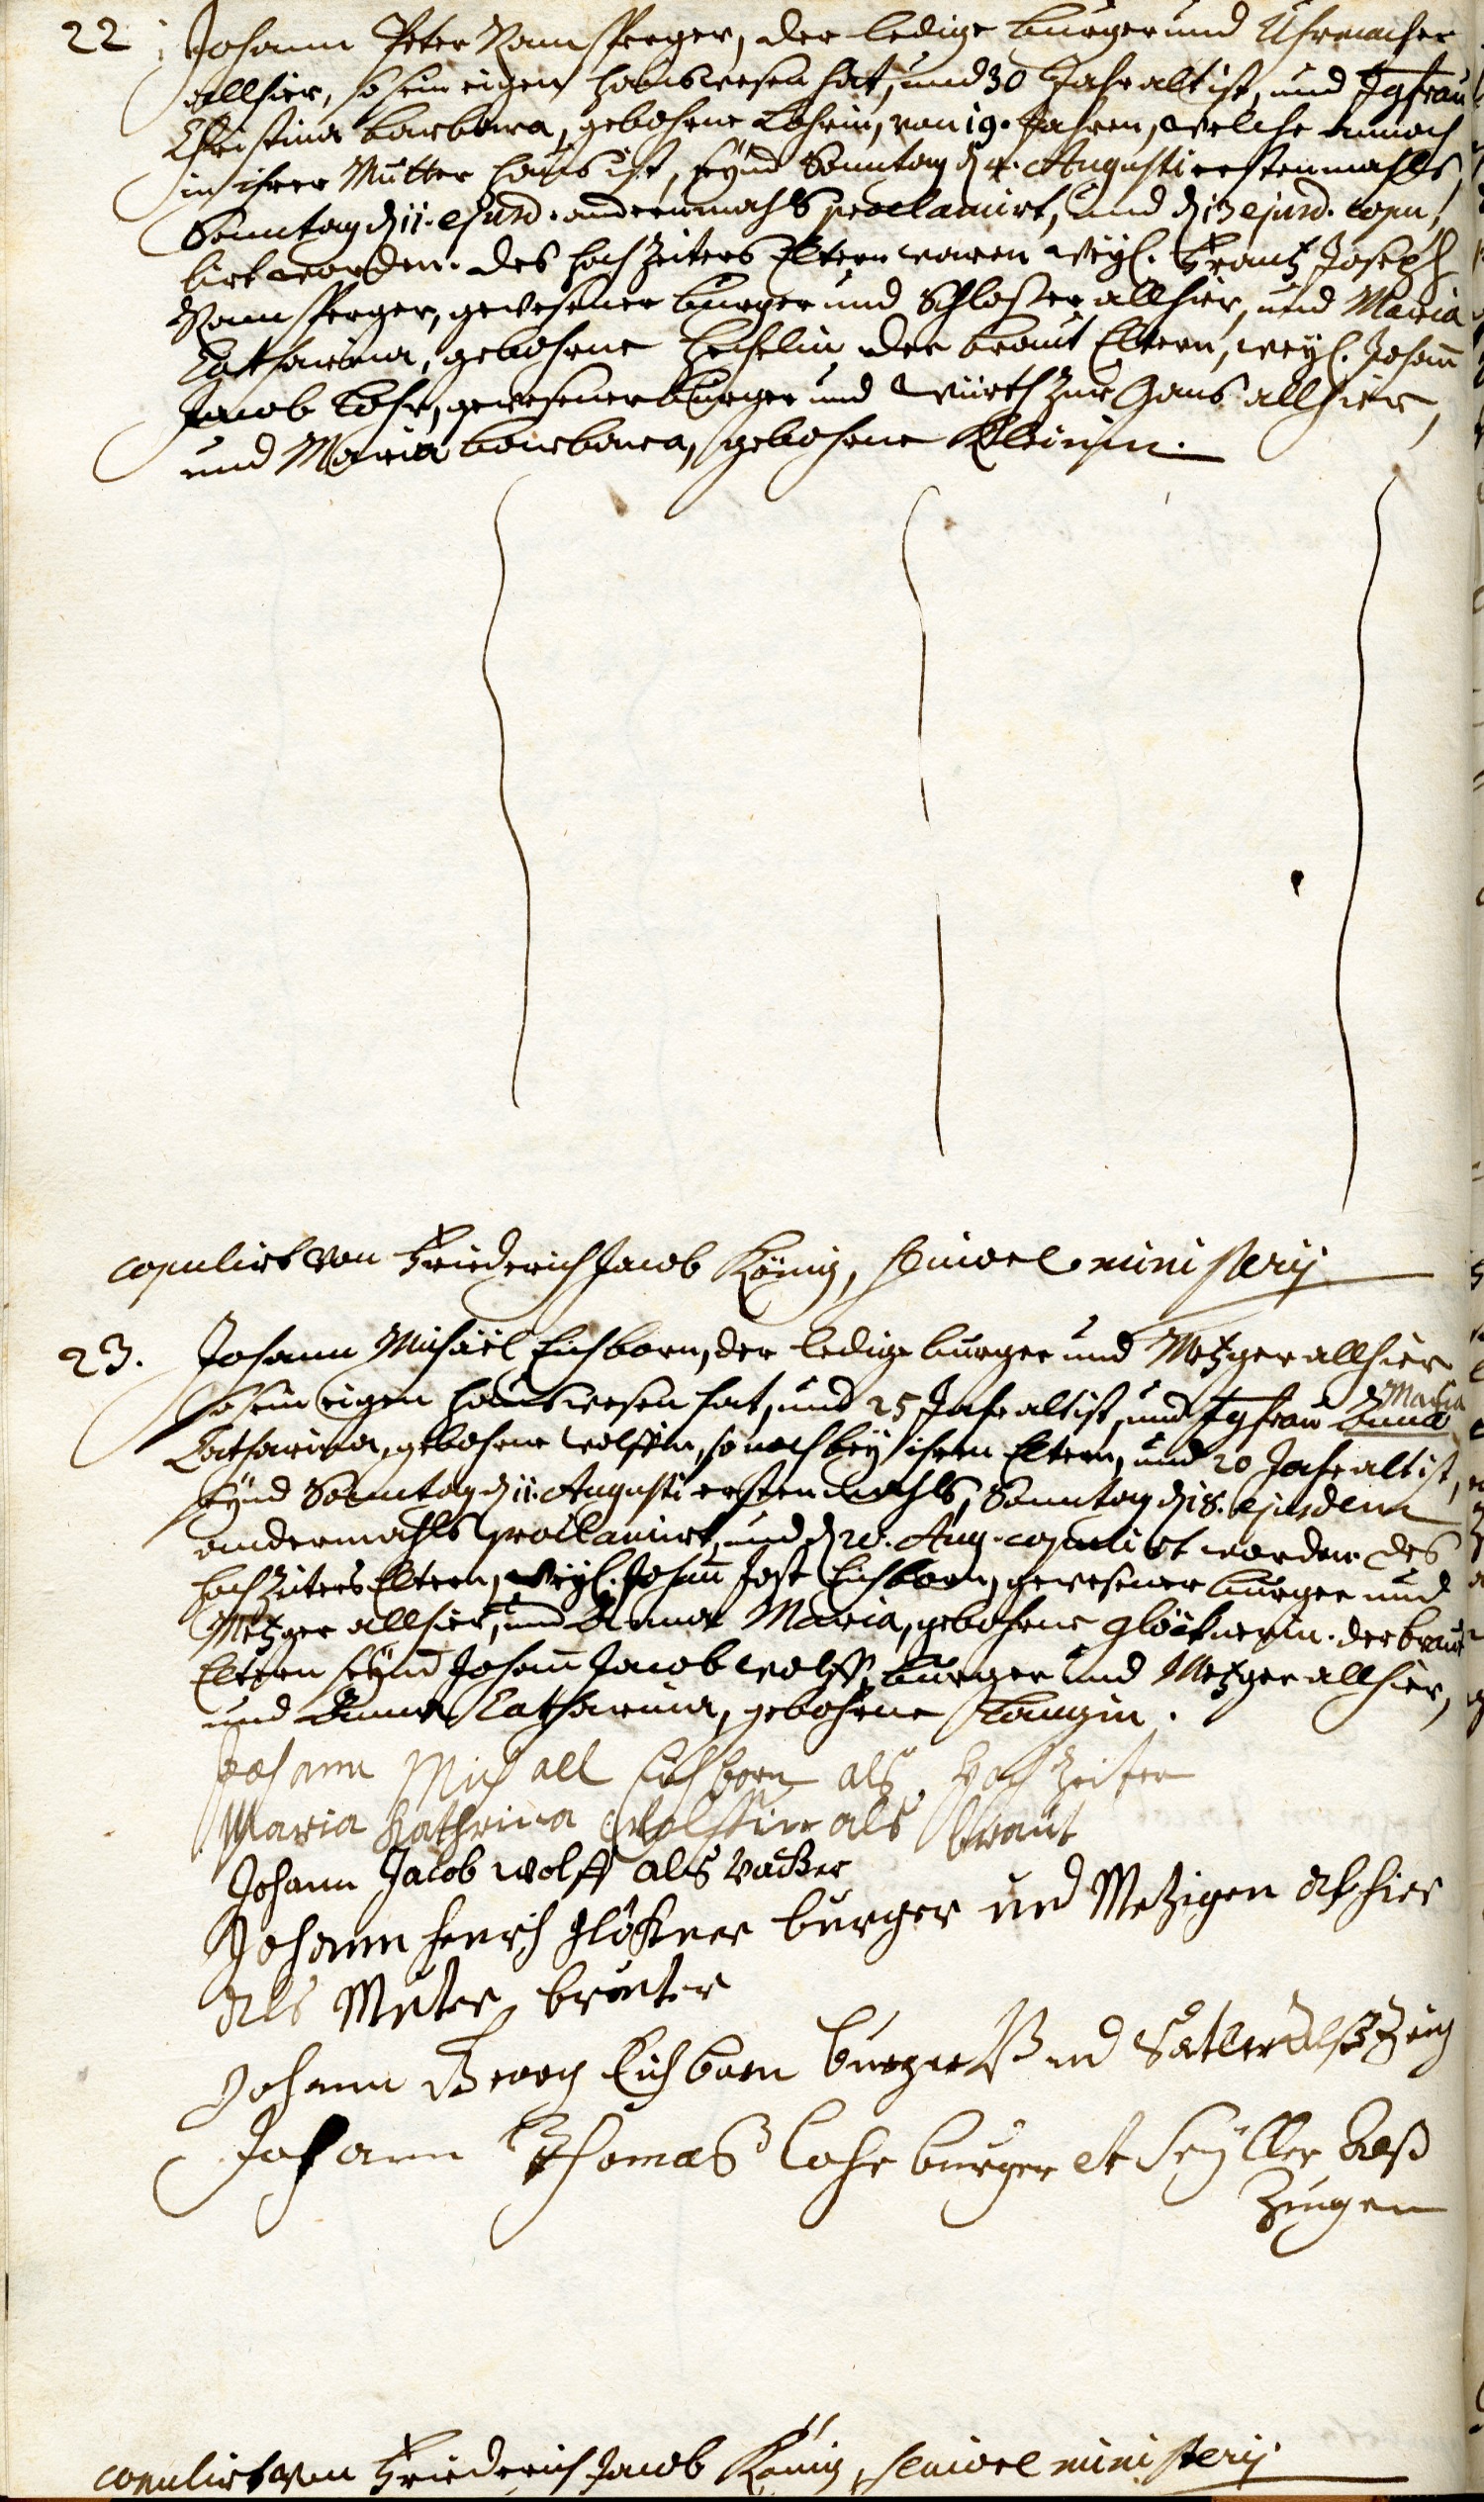 22. Johann Peter Ramsperger, der ledige burger und Uhrmacher
allhier, so sein eigen Hauswesen hat, und 30 Jahr alt ist, und Jgfrau
Christina Barbara, gebohrne Lohrin, von 19. Jahren, welche annoch
in ihrer Mutter Haus ist, seynd Sonntag d. 4. Augusti erstenmahls,
Sonntag d. 11. ejusd. andermahls proclamirt, und d. 13 ejusd. copu-
lirt worden. Des Hochzeiters Eltern waren weyl. Frantz Joseph
Ramsperger, gewesener burger und Schloßer allhier, und Maria
Catharina, gebohrne Hechelin der braut Eltern, weyl. Johann
Jacob Lohr, gewesener burger und Würth zur Gans allhier,
und Maria barbara, gebohrne Kleinin.
copulirt von Friederich Jacob König, seniore ministerij
23. Johann Michaël Eichborn, der ledige burger und Metzger allhier
so sein eigen Hauswesen hat, und 25 Jahr alt ist, und Jgfrau Anna Maria
Catharina, gebohrne Wolffin, so noch bey ihren Eltern, und 20 Jahr alt ist,
seynd Sonntag d. 11. Augusti erstenmahls, Sonntag d. 18. ejusdem
andermahls proclamirt, und d. 20. Aug. copulirt worden. des
Hochzeiters Eltern, weyl. Johann Jost Eichborn, gewesener burger und
Metzger allhier, und Anna Maria, gebohrne Glöcknerin. der braut
Eltern seynd Johann Jacob Wolff, burger und Metzger allhier,
und Anna Catharina, gebohrne Langin.
Johann Michall Eichborn als Hochzeiter
Maria Kathrina Wolffin als braut
Johann Jacob Wolff als Vatter
Johann Henrich Glökner burger und Metzigen alhier
als Muter bruter
Johann Georg Eichborn burger und Satler als Zeig
Johann Thomas Lohr burger et Seyller als
Zeugen
copulirt von Friederich Jacob König, seniore ministerij